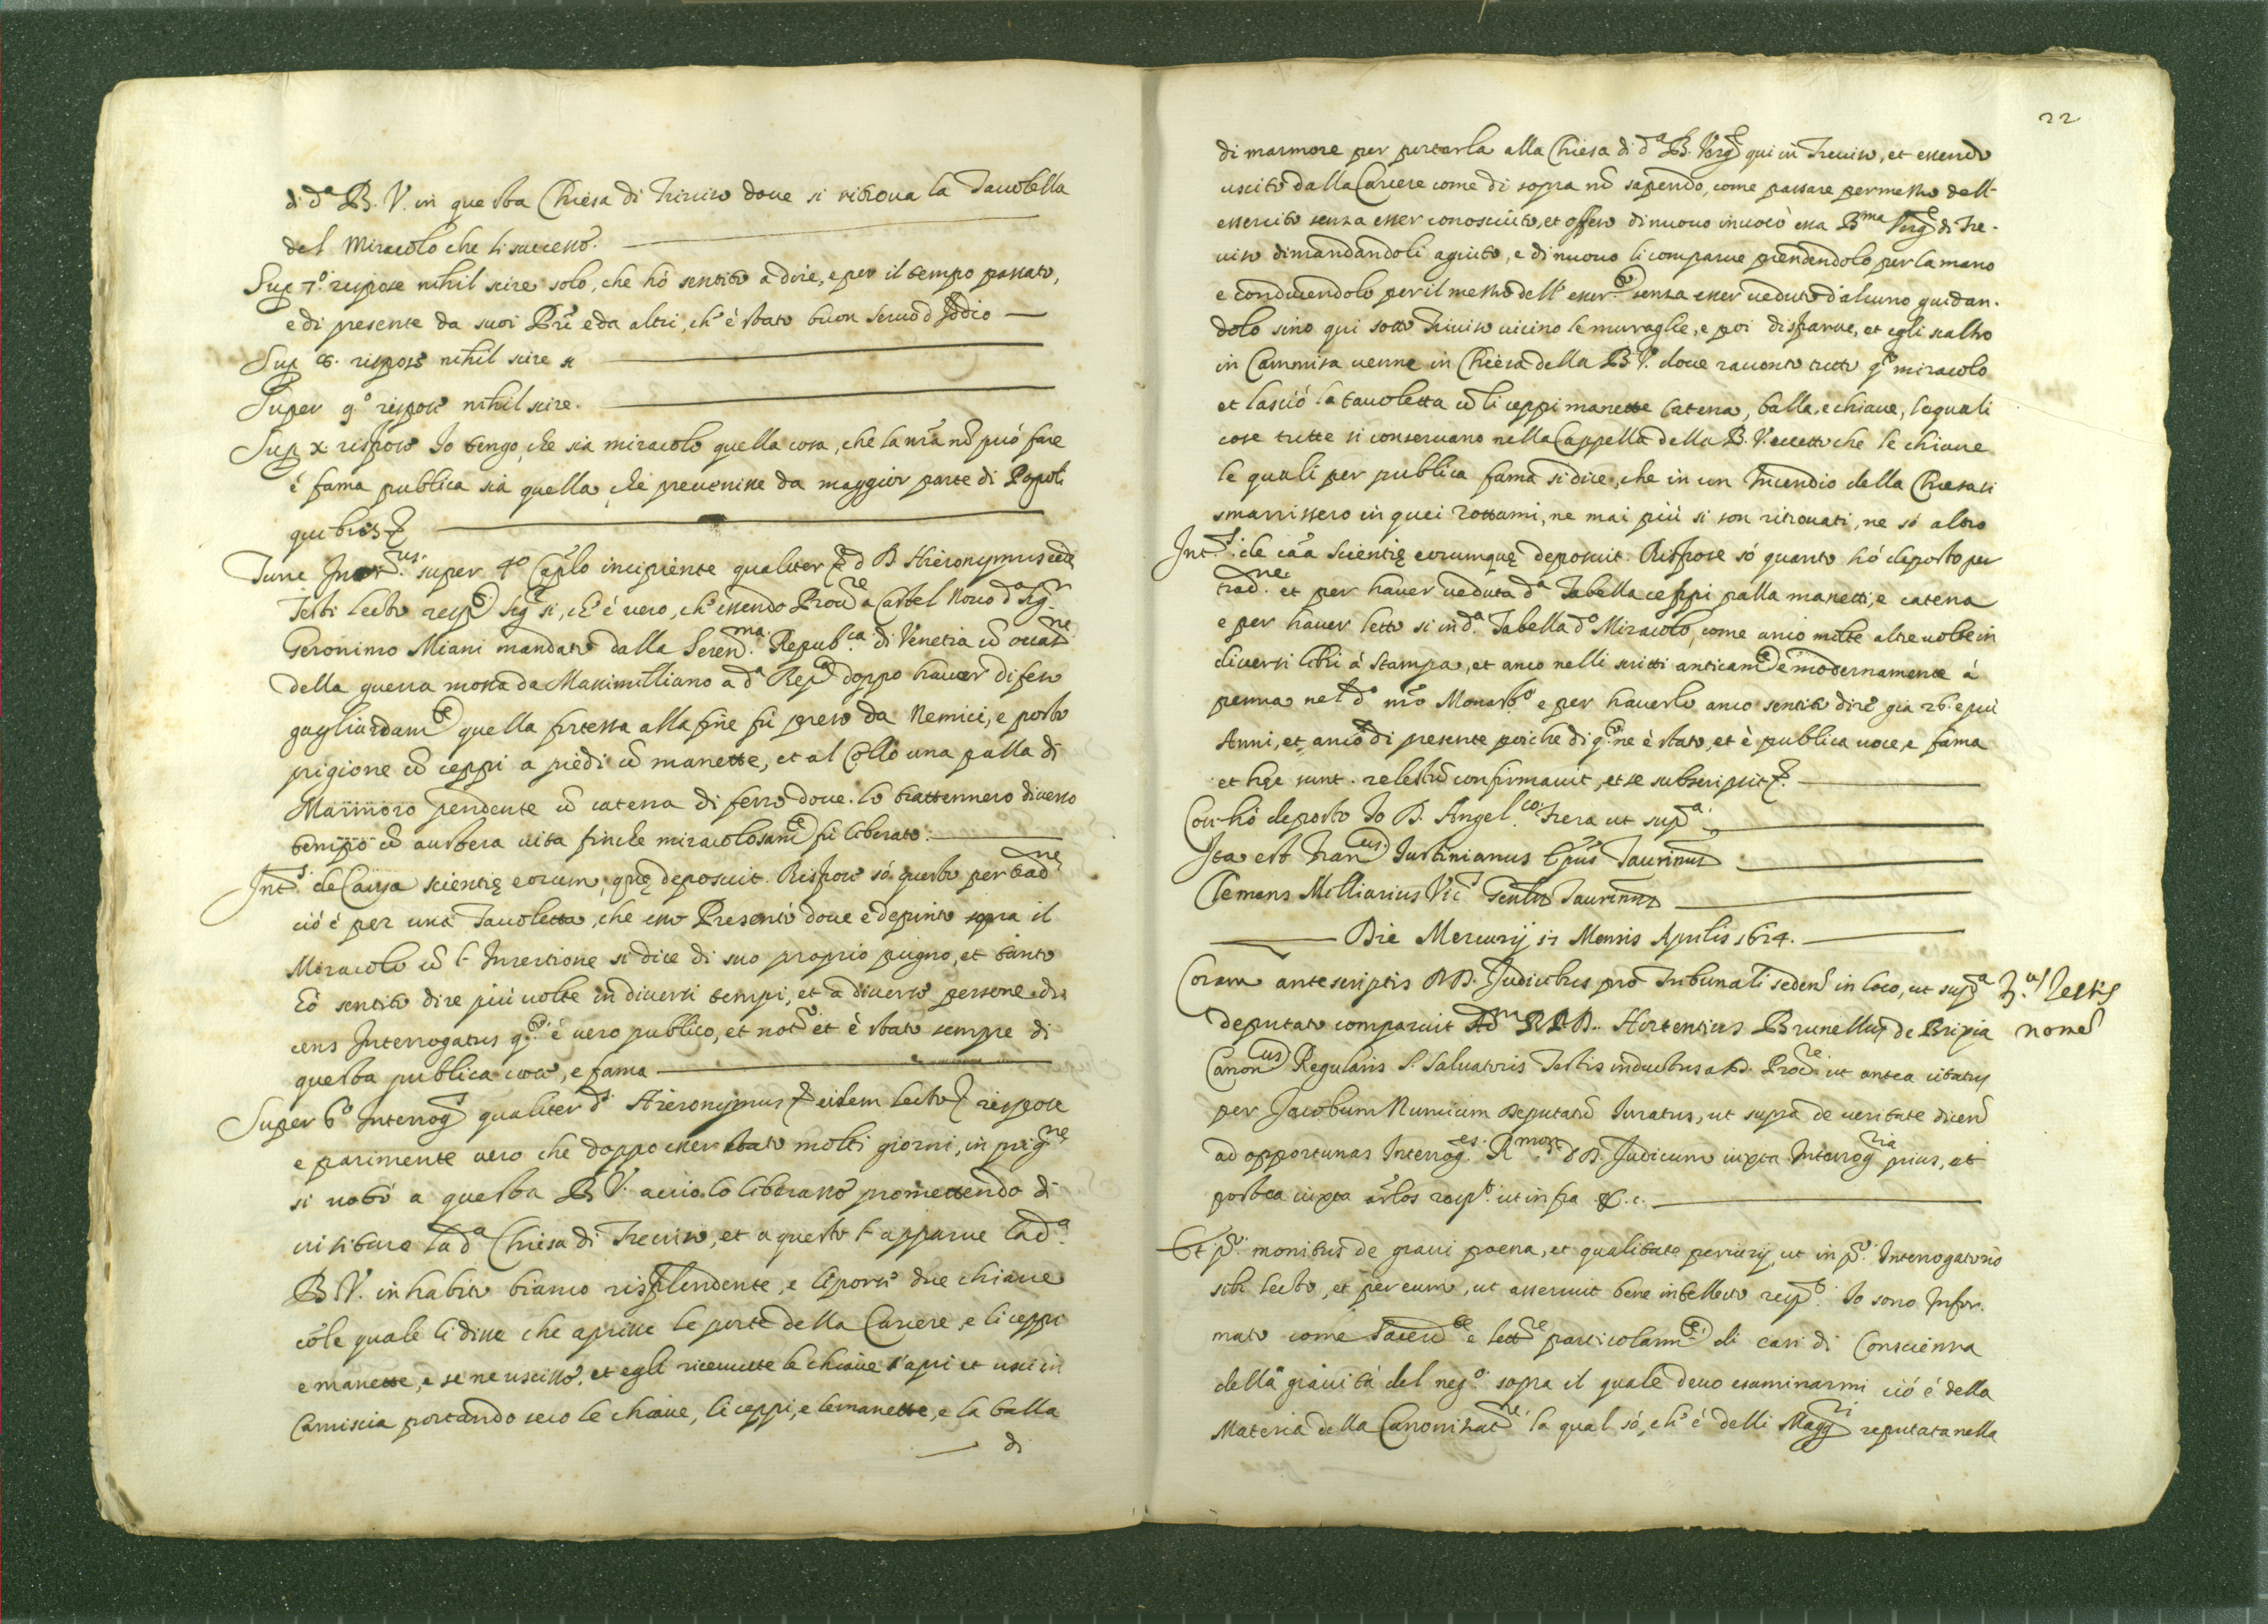 di d.ª B. V. in questa Chiesa di Treviso doue si ritroua la Tauolella
del Miracolo che li successo.
Sup 7.º rispose nihil scire solo, che hò sentito à dire, e per il tempo passato,
e di presente da suoi Pri e da altri, ch' è stato buon seruo d Iddio
Sup 8. rispose nihil scire
Super 9.º rispose nihil scire.
Sup x rispose Io tengo, che sia miracolo quella cosa, che la nrã nõ può fare
è fama publica sia quella, che preuenisse da maggior parte di Popoli

Tunc super 4.º Caplo incipiente qualiter d B Hieronymus eidẽ
Testi lecto resp. sig.r si, ch' è vero, ch' essendo Proure a Castel Nouo d.º sig.r
Geronimo Miani mandato dalla Seren.ma Repub.ca di Venetia cõ occas.ne
della guerra mossa da Massimiliano a d.ª Rep.ca doppo hauer difeso
gagliardam.te quella fortezza alla fine fù preso da Nemici, e posto
prigione cõ ceppi a piedi cõ manette, et al Collo una palla di
Marmoro pendente cõ catena di ferro doue lo trattennero diuerso
tempo cõ austera uita finche miracolosam.te fù liberato.
Int.s de Causa scientię eorum, quę deposuit. Rispose sò questo per trad.ne
ciò è per una Tauoletta, che esso Presentò doue è depinto sopra il
Miracolo cõ l' Inscrittione si dice di suo proprio pugno, et tanto
hò sentito dire più uolte in diuersi tempi, et a diuerse persone di
cens Interrogatus q.to è vero publico, et not.o et è stato sempre di
questa publica uoce, e fama
Super 6.º Interrog.s qualiter d.s Hieronymus eidem lecto rispose
e parimente uero che doppo esser stato molti giorni, in prig.ne
si uotò a questa B V. acciò lo liberasse promettendo di
uisitare la d.ª Chiesa di Treuiso, et a questo l' apparue la d.ª
B V. in habito bianco risplendente, e li portò due chiaue
cõ le quale li disse che aprisse le porte della Carcere, e li ceppi
e manette, e se ne uscisse, et egli riceuute le chiaue s' aprì et uscì in
Camiscia portando seco le chiaue, li ceppi, e le manette, e la balla
di
22
di marmore per portarla alla Chiesa di d.ª B. Verg.e qui in Treuiso, et essendo
uscito dalla Carcere come di sopra nõ sapendo, come passare per mezzo dell'
essercito senza esser conosciuto, et offeso di nuouo inuocò essa B.ma Verg.e di Tre-
uiso dimandandoli agiuto, e di nuouo li comparue prendendolo per la mano
e conducendolo per il mezzo dell' eser.to senza esser ueduto d'alcuno guidan-
dolo sino qui sotto Treuiso uicino le muraglie, e poi disparue, et egli scalzo
in Cammisa uenne in Chiesa della B.V. doue racontò tutto q.to miracolo
et lasciò la tauoletta cõ li ceppi manette Catena, balla, e chiaue, le quali
cose tutte si conseruano nella Cappella della B. V. eccetto che le chiaue
le quali per publica fama si dice, che in un Incendio della Chiesa si
smarrissero in quei rottami, ne mai più si son ritrouati, ne sò altro
Int.s de cãa Scientię eorumquę deposuit. Rispose sò quanto hò deposto per
trad.ne et per hauer ueduta d.ª Tabella ceppi palla manetti, e catena
e per hauer letto si in d.ª Tabella d.º Miracolo, come anco molte altre uolte in
diuersi libri à stampa, et anco nelli scritti anticam.te e modernamente à
penna nel d.º nrõ Monast.o e per hauerlo anco sentito dire già 26. e più
Anni, et anco di presente poiche di q.to ne è stato, et è publica uoce, e fama
et hęc sunt. relectũ confirmauit, et se subscripsit
Così hò deposto Io D. Angel.co Frera ut sup.ª
Ita est Fran.cus Iustinianus Epus Taruinus
Clemens Milliarius Vic.s Gen.lis Taruinus
Die Mercurij 17 Mensis Aprilis 1624.
Coram antescriptis DD. Judicibus pro Tribunali seden. in loco, ut sup.ª
deputato comparuit Adm R P D. Hortentius Brunellus de Brixia
Canon.cus Regularis S. Saluatoris Testis inductus a D. Proc.re ut antea citatus
per Jacobum Nuncium Deputatũ Iuratus, ut supra de ueritate dicen.
ad opportunas Interrog.es R.morum DD. Judicum iuxta Interrog.ria prius, et
postea iuxta arłos resp.t ut infra &.c.
3.us Testis
nome
Et p.º monitus de graui poena, et qualitate periurij, ut in p.º Interrogatorio
sibi lecto, et per eum, ut asseruit bene intellecto resp.t Io sono Infor-
mato come Sacerd.te e lett.re particolarm.te di casi di Conscienza
della grauità del neg.o sopra il quale deuo esaminarmi ciò è della
Materia della Canonizat.ne la qual sò, ch' è delli Magg.ri reputata nella